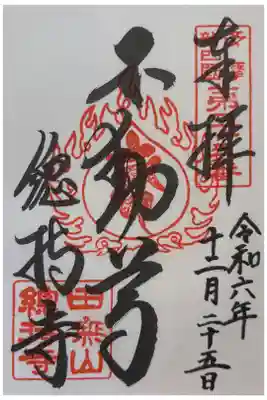 奉拝
令和六年
十二月二十五日
不動尊
總持寺
田無山
總持寺